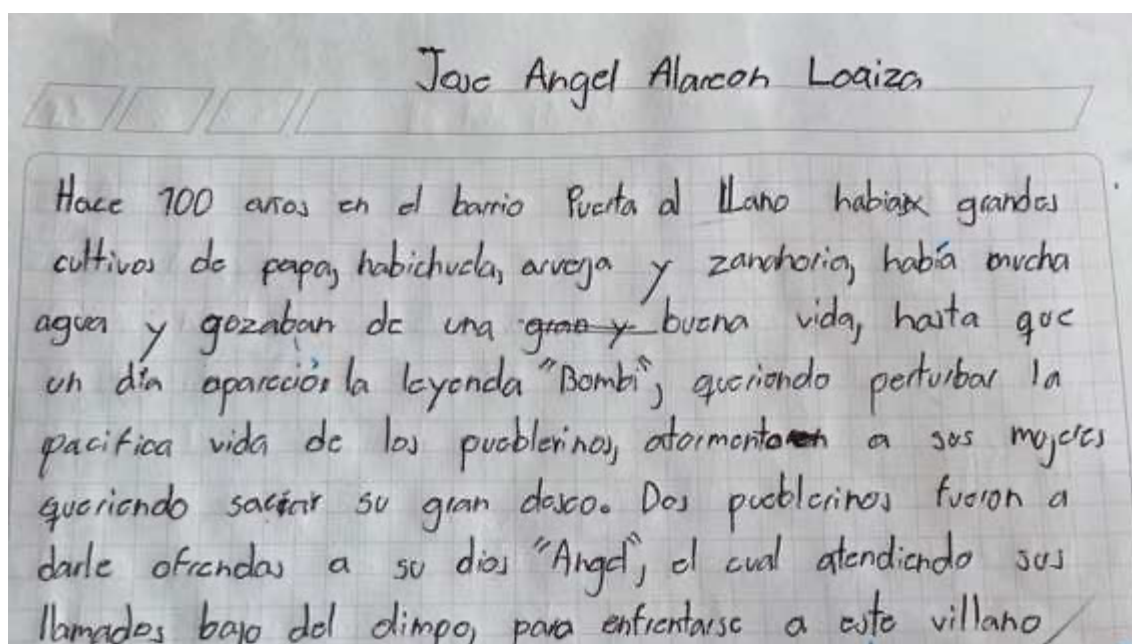 Jose Angel Alarcon Loaiza
Hace 100 anos en el barrio Puerta al Llano habian grandes
cultivos de papa, habichuela, arveja y zanahoria, había mucha
agua y gozaban de una gran y buena vida, hasta que
un día apareció la leyenda "Bombi", queriendo perturbar la
pacifica vida de los pueblerinos, atormento a sus mujeres
queriendo saciar su gran deseo. Dos pueblerinos fueron a
darle ofrendas a su dios "Angel", el cual atendiendo sus
llamados bajo del olimpo, para enfrentarse a este villano